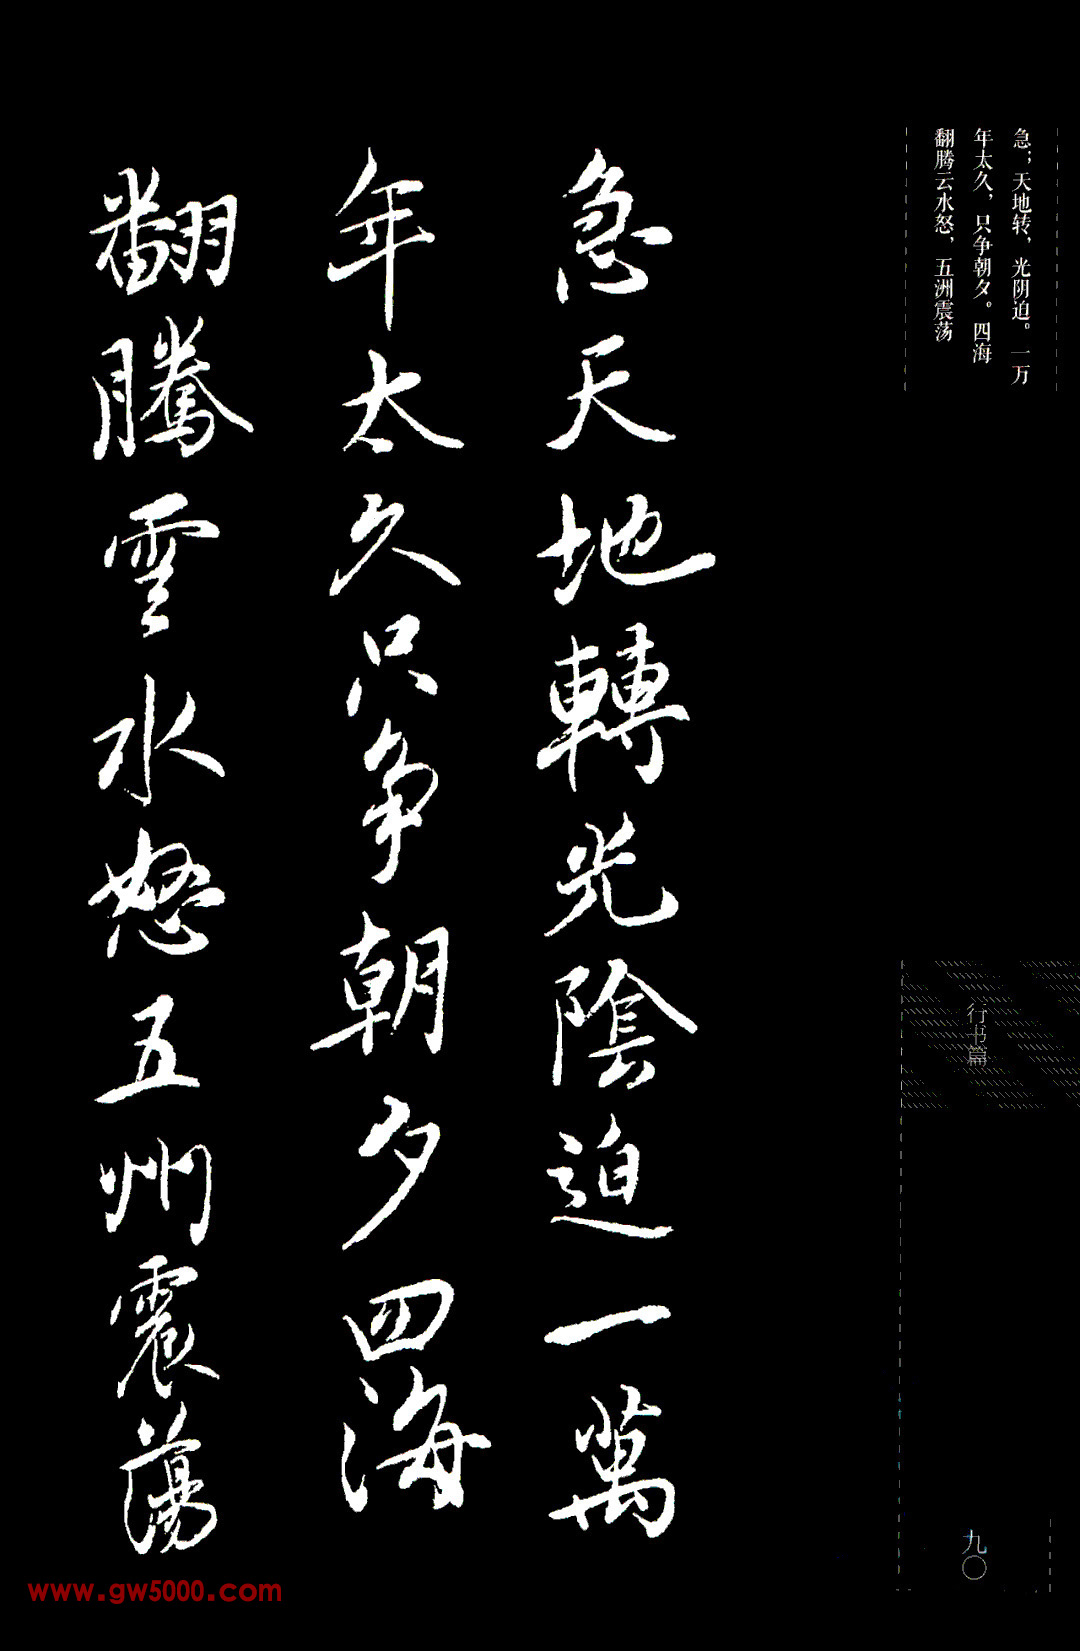 急；天地转，光阴迫。一万
年太久，只争朝夕。四海
翻腾云水怒，五洲震荡
急天地轉光陰迫一萬
年太久只争朝夕四海
翻騰雲水怒五州震蕩
行书篇
九〇
www.gw5000.com